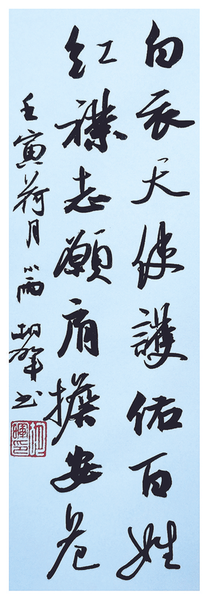 白衣天使護佑百姓
紅襟志願肩擔安危
壬寅荷月
書